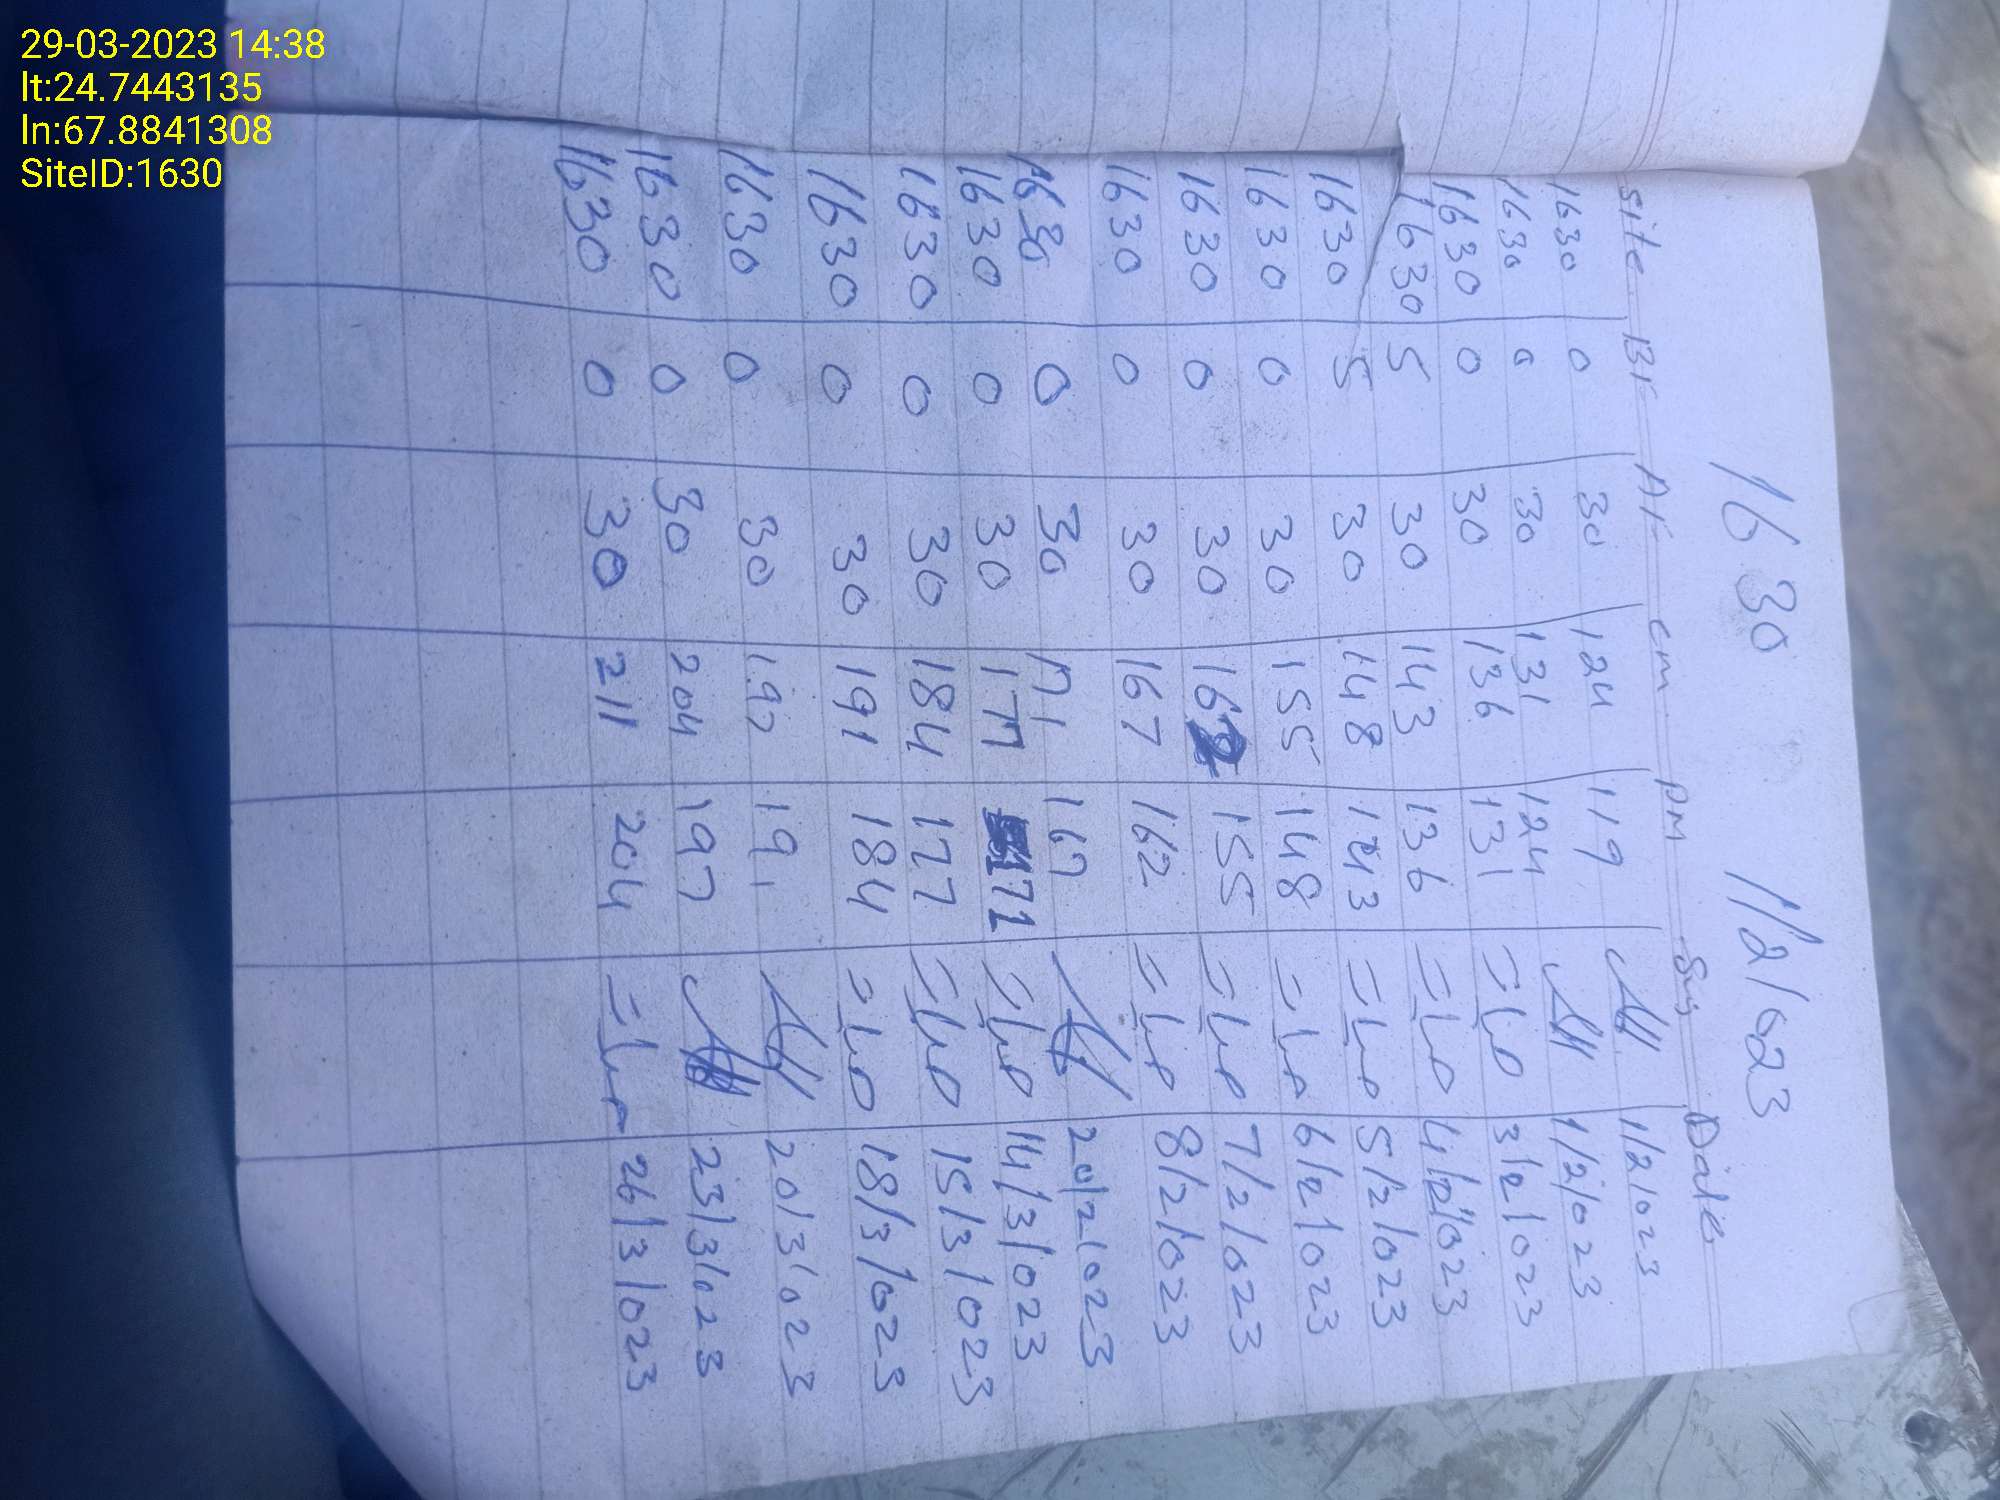 29-03-2023 14:38
lt:24.7443135
ln:67.8841308
SiteID:1630
1630 1/2/023
site Br Ar cm PM Date
1630 0 30 124 119 1/2/023
1630 0 30 131 124 1/2/023
1630 0 30 136 131 3/2/023
1630 5 30 143 136 4/2/023
1630 5 30 148 143 5/2/023
1630 0 30 155 148 6/2/023
1630 0 30 162 155 7/2/023
1630 0 30 167 162 8/2/023
1630 0 30 171 167 20/2/023
1630 0 30 177 171 14/3/023
1630 0 30 184 177 15/3/023
1630 0 30 191 184 18/3/023
1630 0 30 197 191 20/3/023
1630 0 30 204 197 23/3/023
1630 0 30 211 204 26/3/023